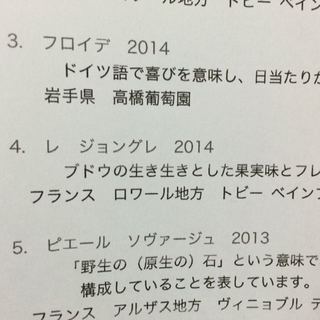 ール地方 トビー ベイン
3. フロイデ 2014
ドイツ語で喜びを意味し、日当たりが
岩手県 高橋葡萄園
4. レ ジョングレ 2014
ブドウの生き生きとした果実味とフレ
フランス ロワール地方 トビー ベインブ
5. ピエール ソヴァージュ 2013
「野生の（原生の）石」という意味で
構成していることを表しています。
フランス アルザス地方 ヴィニョブル デ